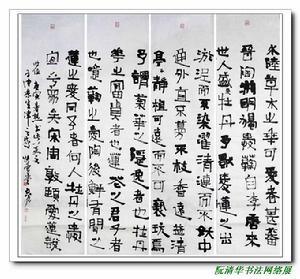 水陸草木之華可愛者甚蕃
晉陶淵明獨愛菊自李唐來
世人盛愛牡丹予獨愛蓮之出
淤泥而不染濯清漣而不妖中
通外直不蔓不枝香遠益清
亭亭靜植可遠觀而不可褻玩焉
予謂菊華之隱逸者也牡丹
華之富貴者也蓮華之君子者
也噫菊之愛陶後鮮有聞
蓮之愛同予者何人牡丹之愛
宜乎眾矣宋周敦頤愛蓮說
阮清华书法网络展